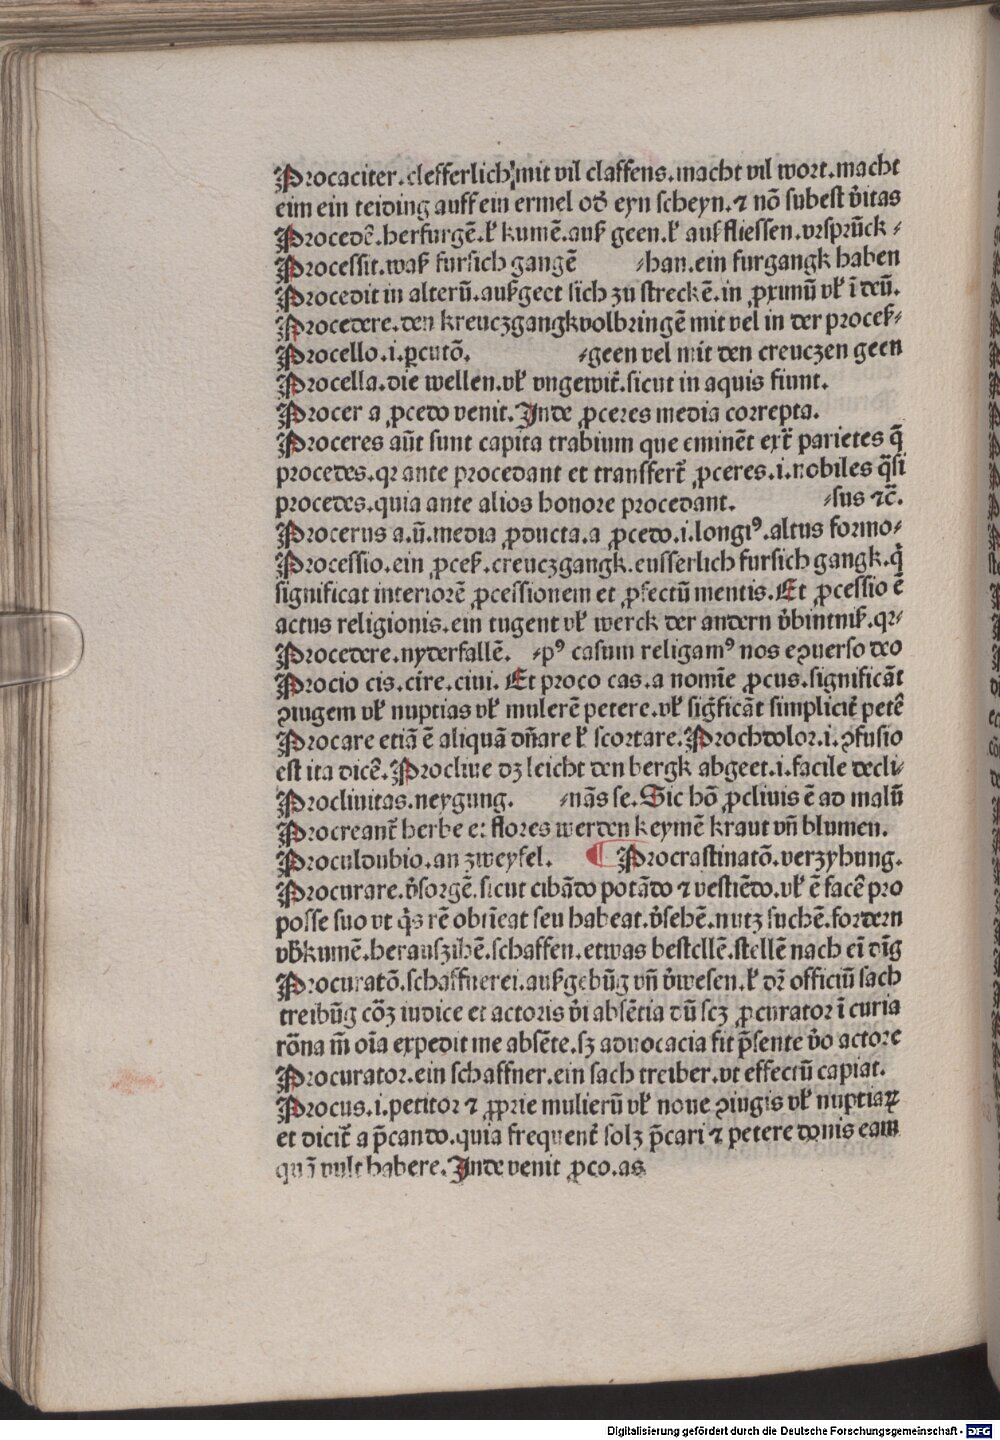 Procaciter.clefferlich mit vil claffens.macht vil wort.macht
eim ein teiding auff ein ermel od̕ eyn scheyn.⁊ nō subest v̕itas
Procedē.herfurgē.ľ kumē.auß geen.ľ außfliessen.vrsprūck⸗
Processit.waß fursich gangē ⸗han.ein furgangk haben
Procedit in alterū.außgeet sich zu streckē.in ꝓximū vľ ī deū.
Procedere.den kreuczgangk volbringē mit vel in der proceß⸗
Procello.i.ꝑcutō. ⸗geen vel mit den creuczen geen
Procella.die wellen.vľ vngewit̕.sicut in aquis fiunt.
Procer a ꝓcedo venit.Inde ꝓceres media correpta.
Proceres aūt sunt capita trabium que eminēt ext̕ parietes q̄
procedes.qr ante procedant et transfert̕ ꝓceres.i.nobiles q̄si
procedes.quia ante alios honore procedant. ⸗sus ⁊c̄.
Procerus a.ū.media ꝓducta.a ꝓcedo.i.longiꝰ.altus formo⸗
Processio.ein ꝓceß.creuczgangk.eusserlich fursich gangk.q̄
significat interiorē ꝓcessionem et ꝓfectū mentis.Et ꝓcessio ē
actus religionis.ein tugent vľ werck der andern v̕bintniß.qr⸗
Procedere.nyderfallē. ⸗pꝰ casum religamꝰ nos eꝯuerso deo
Procio cis.cire.ciui.Et proco cas.a nomīe ꝓcus.significāt
ꝯiugem vľ nuptias vľ mulerē petere.vľ sig̕ficāt simplicit̕ petē
Procare etiā ē aliquā dn̄are ľ scortare.Prochdolor.i.ꝯfusio
est ita dicē.Procliue dz leicht den bergk abgeet.i.facile decli⸗
Procliuitas.neygung. ⸗nās se.Sic hō ꝓcliuis ē ad malū
Procreant̕ herbe et flores werden keymē kraut vn̄ blumen.
Proculdubio.an zweyfel. Procrastinatō.verzyhung.
Procurare.v̕sorgē.sicut cibādo potādo ⁊ vestiēdo.vľ ē facē pro
posse suo vt q̄s rē obtīeat seu habeat.v̕sehē.nutz suchē.fordern
vb̕kumē.herauszihē.schaffen.etwas bestellē.stellē nach eī dīg
Procuratō.schaffnerei.außgebūg vn̄ v̕wesen.ľ dr̄ officiū sach
treibūg cōꝫ iudice et actoris v̕i absētia dū scꝫ ꝓcurator ī curia
rōna m̄ oīa expedit me absēte.sꝫ aduocacia fit p̄sente v̕o actore
Procurator.ein schaffner.ein sach treiber.vt effectū capiat.
Procus.i.petitor ⁊ ꝓprie mulierū vľ noue ꝯiugis vľ nuptiaꝝ
et dicit̕ a p̄cando.quia frequent̕ solꝫ p̄cari ⁊ petere donis eam
quā vult habere.Inde venit ꝓco.as
Digitalisierung gefördert durch die Deutsche Forschungsgemeinschaft - DFG